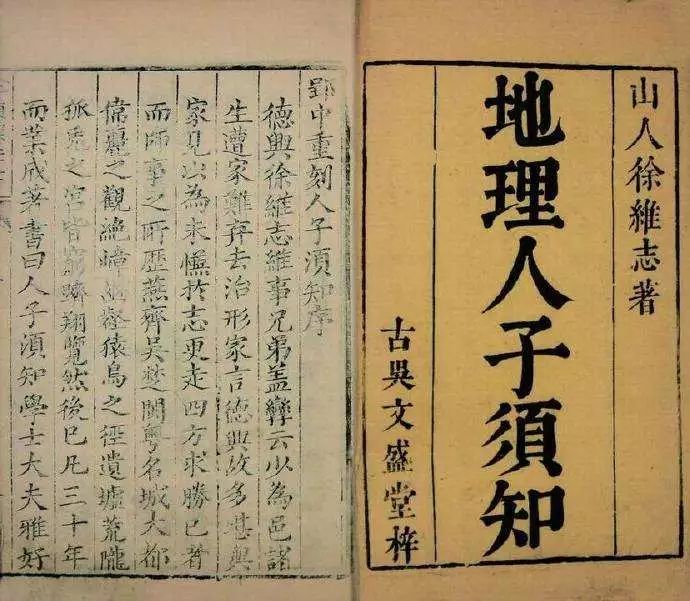 山人徐維志著
地理人子須知
古吳文盛堂梓
郢中重刻人子須知序
德興徐維志維事兄弟蓋孿云少為邑諸
生遭家難弃去治形家言德興故多堪輿
家見以為未愜於志更走四方求勝已者
而師事之所歷燕齊吳楚閩粵名城大都
偉麗之觀絶嶂幽壑猿鳥之徑遺墟荒隴
狐兎之宮皆窮躋翔覽然後已凡三十年
而業成著書曰人子須知學士大夫雅好